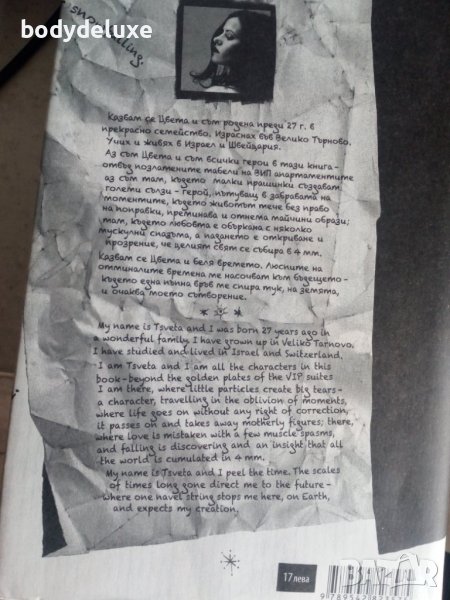 bodydeluxe
Казвам се Цвета и съм родена преди 27 г. в
прекрасно семейство. Израснах във Велико Търново.
Учих и живях в Израел и Швейцария.
Аз съм Цвета и съм всички герои в тази книга –
отвъд позлатените табели на ВИП апартаментите
аз съм там, където малки прашинки създават
големи сълзи – герой, пътуващ в забравата на
моментите, където животът тече без право
на поправки, преминава и отнема майчини образи;
там, където любовта е объркана с няколко
мускулни спазъма, а падането е откриване и
прозрение, че целият свят се събира в 4 мм.
Казвам се Цвета и беля времето. Люспите на
отминалите времена ме насочват към бъдещето –
където една пъпна връв ме спира тук, на земята,
и очаква моето сътворение.
My name is Tsveta and I was born 27 years ago in
a wonderful family. I have grown up in Veliko Tarnovo.
I have studied and lived in Israel and Switzerland.
I am Tsveta and I am all the characters in this
book – beyond the golden plates of the VIP suites
I am there, where little particles create big tears –
a character, travelling in the oblivion of moments,
where life goes on without any right of correction,
it passes on and takes away motherly figures; there,
where love is mistaken with a few muscle spasms,
and falling is discovering and an insight that all
the world is cumulated in 4 mm.
My name is Tsveta and I peel the time. The scales
of times long gone direct me to the future –
where one navel string stops me here, on Earth,
and expects my creation.
17 лева
BAZAR